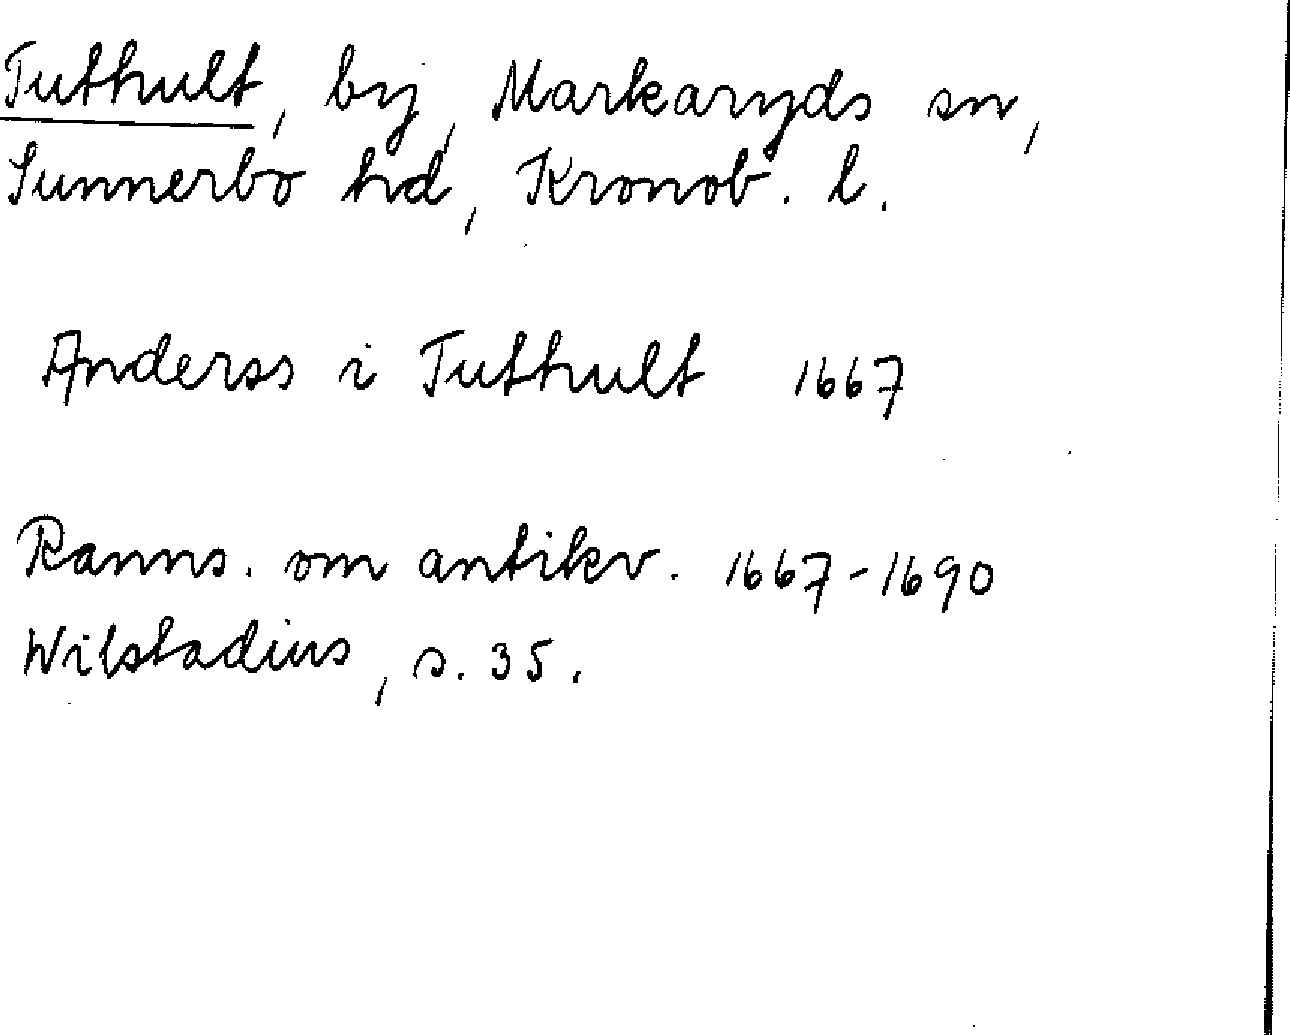 Tuthult, by, Markaryds sn,
Sunnerbo hd, Kronob. l.
Anderss i Tuthult 1667
Ranns. om antikv. 1667-1690
Wilstadius, s. 35.